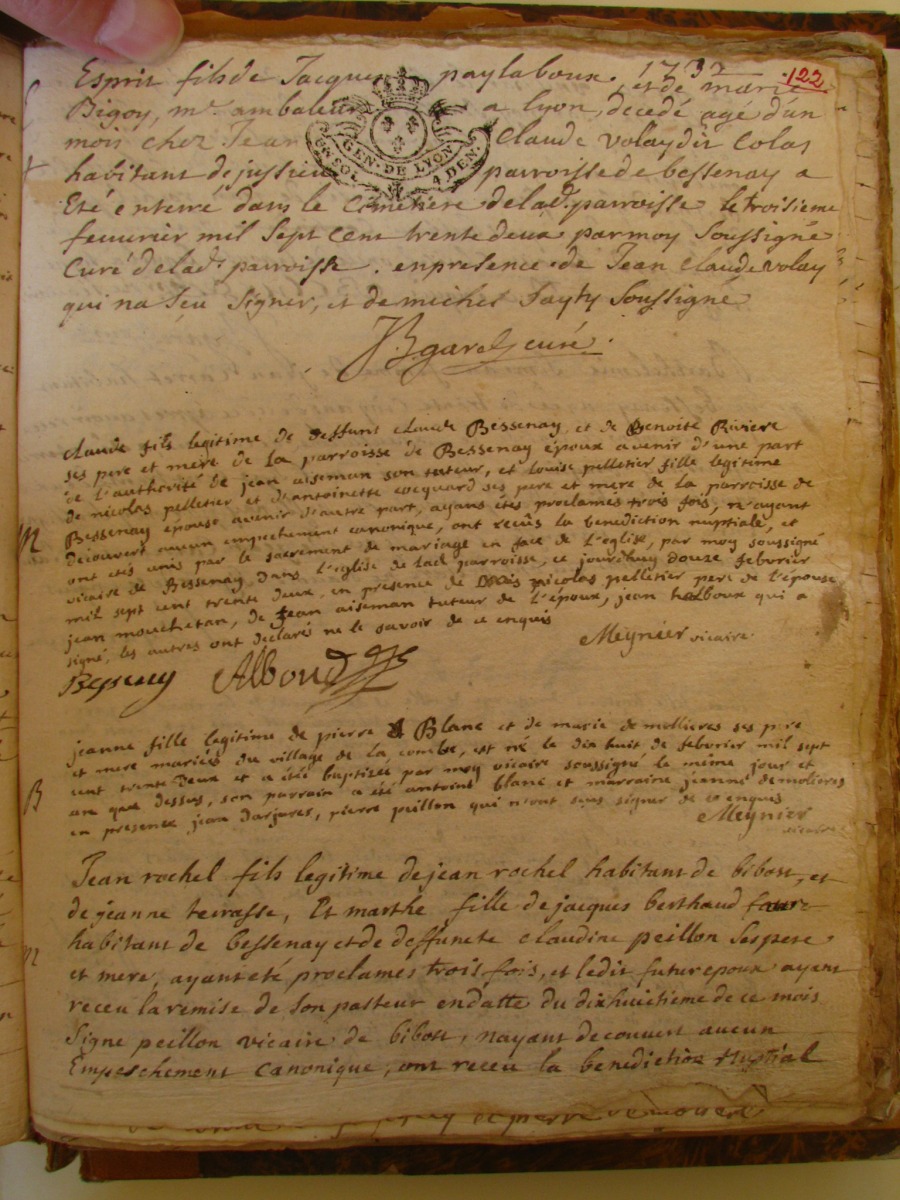 1732
122
Esprit fils de Jacques paylaboux et de marie
Bigoy, mr. ambaleur a lyon, decedé agé d'un
mois chez Jean Claude volay dit Colas
habitant de jussieu parroisse de bessenay a
GEN. DE LYON
SOL 4 DEN.
Eté enterré dans le Cimetiere de lad. parroisse le troisieme
feuurier mil Sept cent trente deux par moy Soussigné
Curé de lad. parroisse. en presence de Jean Claude volay
qui na Sçu Signer, et de michel Soussigné
curé
M
claude fils legitime de deffunt claude Bessenay et de Benoite Riviere
ses pere et mere de la parroisse de Bessenay époux avenir d'une part
de l'authorité de jean aiseman son tuteur, et louise pelletier fille legitime
de nicolas pelletier et d'antoinette cocquard ses pere et mere de la parroisse de
Bessenay épouse avenir d'autre part, ayans étés proclamés trois fois, n'ayant
découvert aucun empechement canonique, ont recûs la benediction nuptiale, et
ont etés unis par le sacrement de mariage en face de l'eglise, par moy soussigné
vicaire de Bessenay dans l'eglise de lad. parroisse, ce jourd'huy douze febvrier
mil sept cent trente deux, en presence de nicolas pelletier pere de l'épouse
jean mouchetan, de jean aiseman tuteur de l'époux, jean qui a
signé, les autres ont declarés ne le savoir de ce enquis
Meynier vicaire
Bessenay
B
jeanne fille legitime de pierre Blanc et de marie de mollieres ses pere
et mere mariés du village de la combe, est né le dix huit de febvrier mil sept
cent trente deux et a été baptizée par moy vicaire soussigné le meme jour et
an que dessus, son parrain a été antoine blanc et marraine jeanne demolieres
en presence jean darjures, pierre peillon qui n'ont sçus signer de ce enquis
Meynier
vicaire
M
Jean rochel fils legitime de jean rochel habitant de bibost, et
de jeanne terrasse, Et marthe fille de jacques berthaud
habitant de bessenay et de deffuncte claudine peillon Ses pere
et mere, ayant été proclames trois fois, et ledit futur epoux ayant
receu la remise de Son pasteur en datte du dix huitieme de ce mois
Signe peillon vicaire de bibost, nayant decouvert aucun
Empeschement Canonique, ont receu la benediction Nuptial